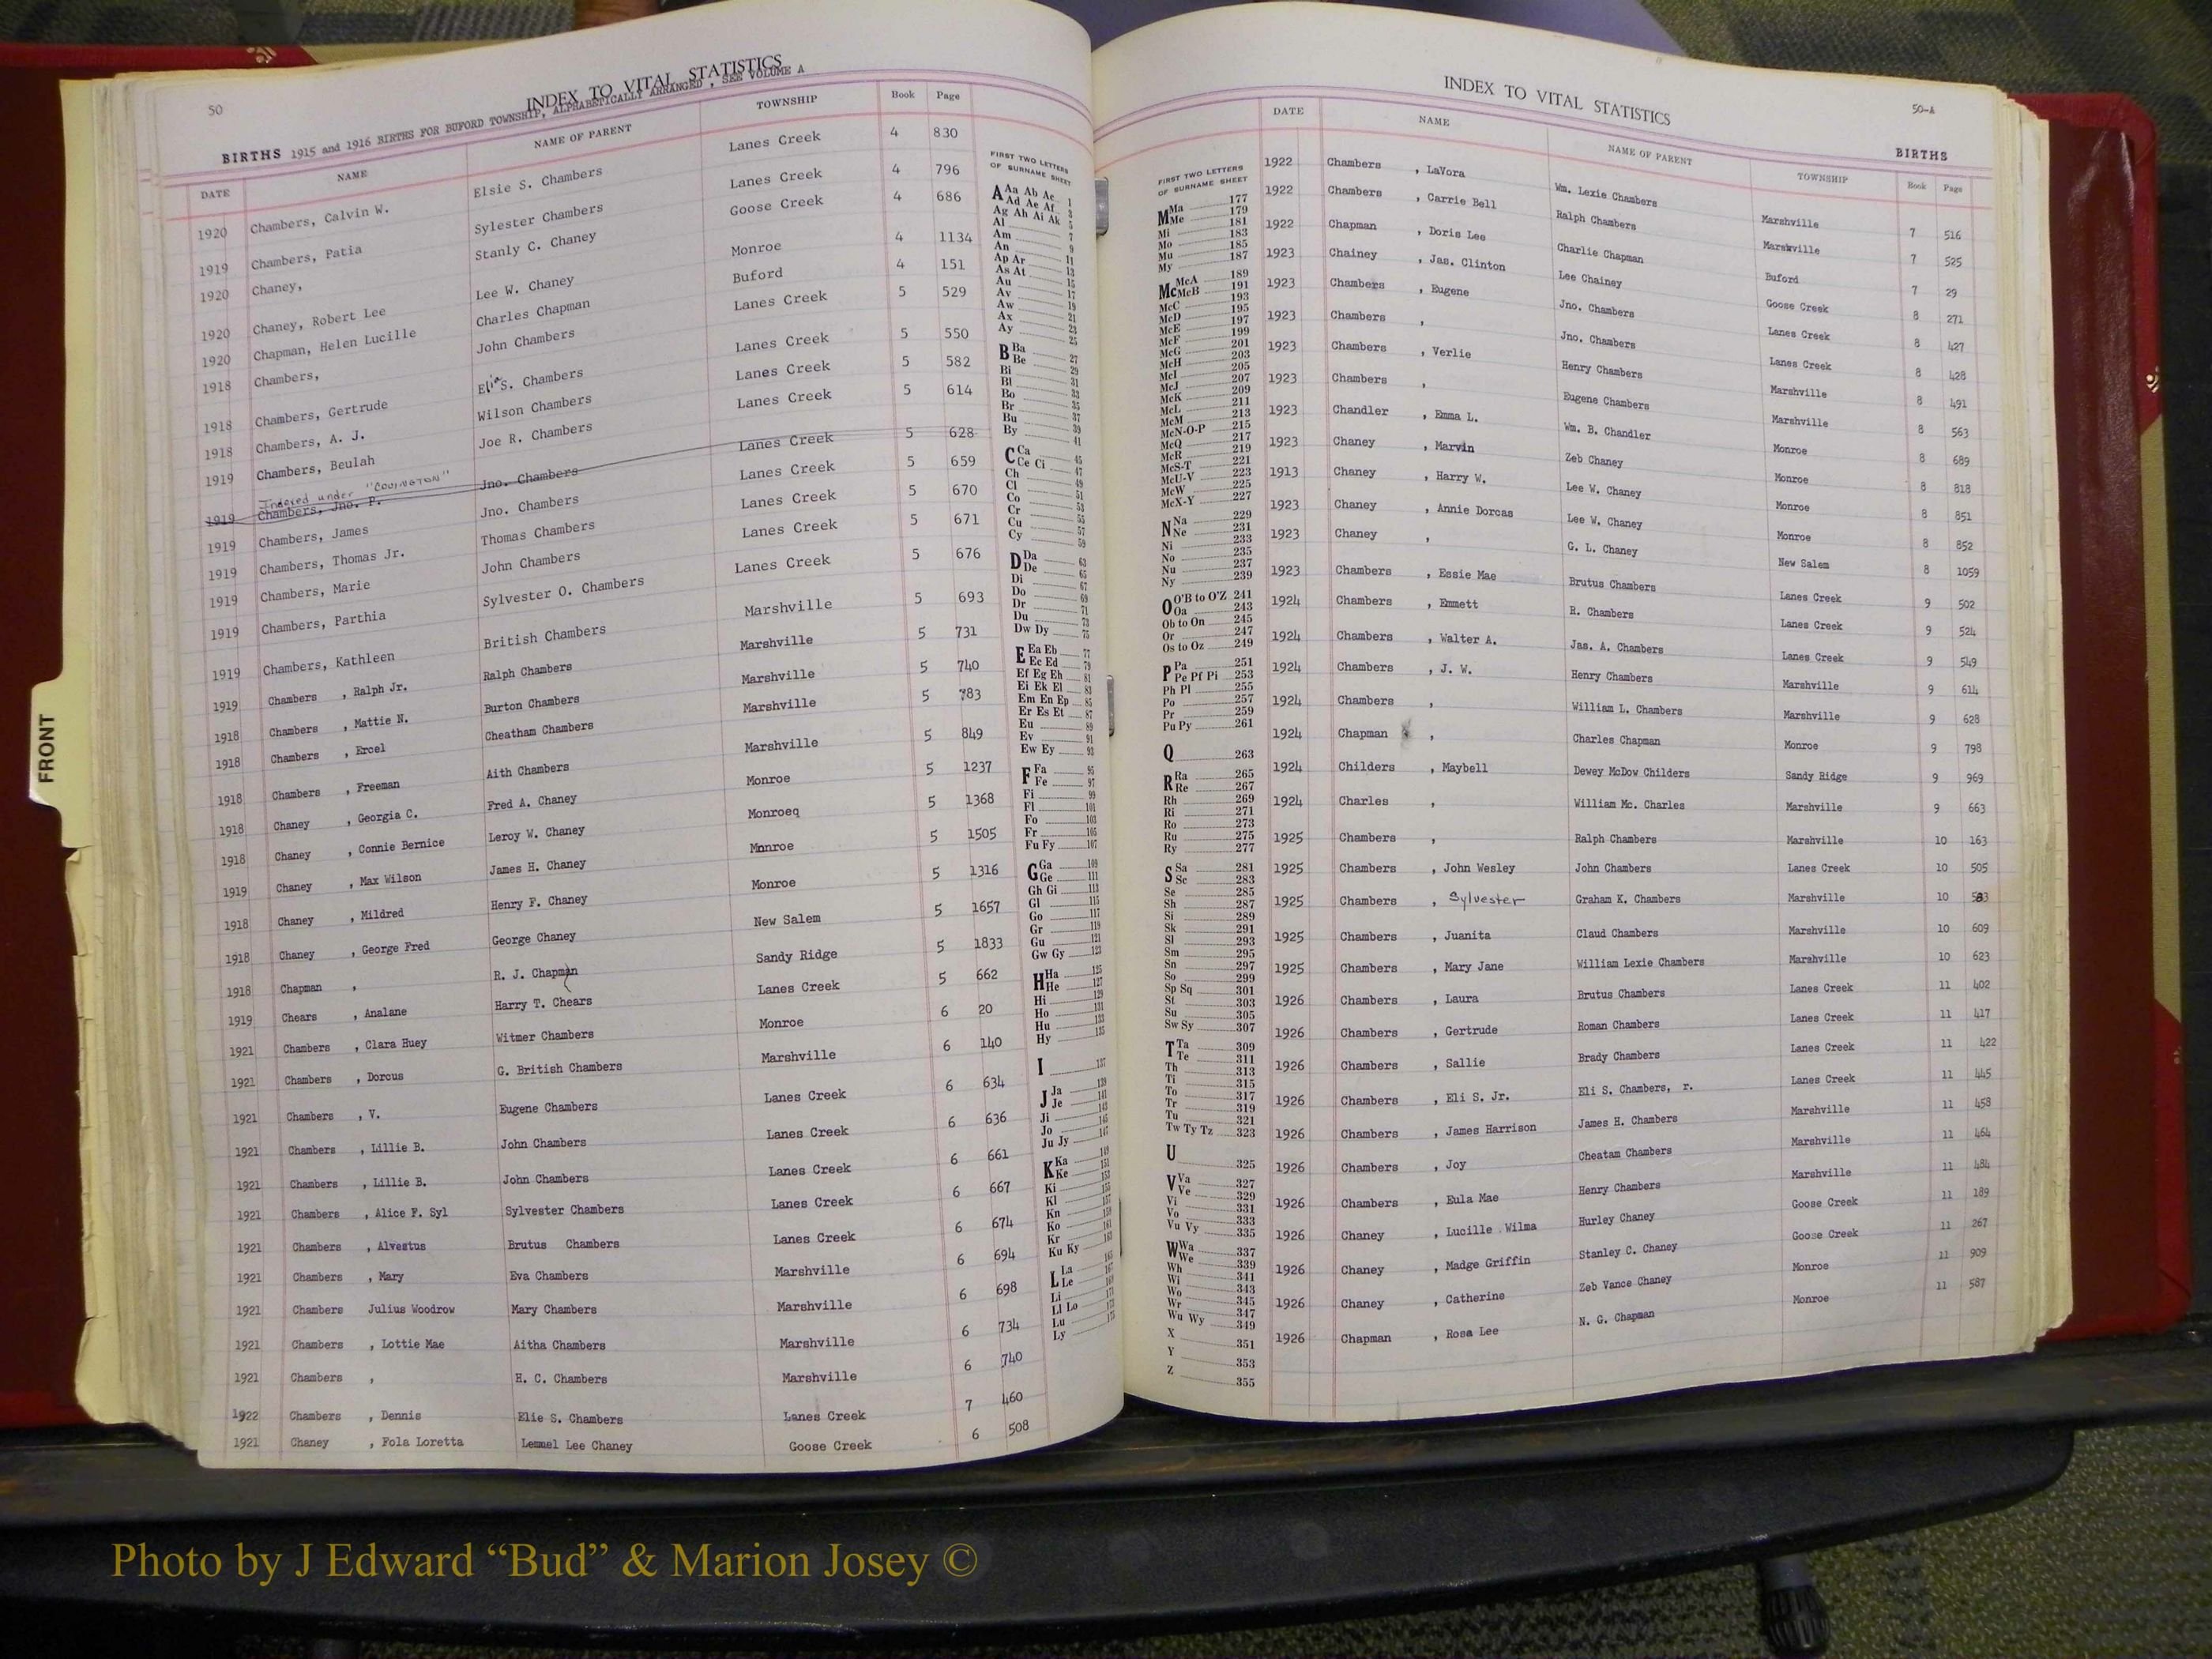 50
INDEX TO VITAL STATISTICS
BIRTHS 1915 and 1916 BIRTHS FOR BUFORD TOWNSHIP, ALPHABETICALLY ARRANGED, SEE VOLUME A
DATE NAME NAME OF PARENT TOWNSHIP Book Page
1920 Chambers, Calvin W. Elsie S. Chambers Lanes Creek 4 830
1919 Chambers, Patia Sylester Chambers Lanes Creek 4 796
1920 Chaney, Stanly C. Chaney Goose Creek 4 686
1920 Chaney, Robert Lee Lee W. Chaney Monroe 4 1134
1920 Chapman, Helen Lucille Charles Chapman Buford 4 151
1918 Chambers, John Chambers Lanes Creek 5 529
1918 Chambers, Gertrude S. Chambers Lanes Creek 5 550
1918 Chambers, A. J. Wilson Chambers Lanes Creek 5 582
1919 Chambers, Beulah Joe R. Chambers Lanes Creek 5 614
Indexed under "COVINGTON"
1919 Chambers, Jno. P. Jno. Chambers Lanes Creek 5 628
1919 Chambers, James Jno. Chambers Lanes Creek 5 659
1919 Chambers, Thomas Jr. Thomas Chambers Lanes Creek 5 670
1919 Chambers, Marie John Chambers Lanes Creek 5 671
1919 Chambers, Parthia Sylvester O. Chambers Lanes Creek 5 676
1919 Chambers, Kathleen British Chambers Marshville 5 693
1919 Chambers , Ralph Jr. Ralph Chambers Marshville 5 731
1918 Chambers , Mattie N. Burton Chambers Marshville 5 740
1918 Chambers , Ercel Cheatham Chambers Marshville 5 783
1918 Chambers , Freeman Aith Chambers Marshville 5 849
1918 Chaney , Georgia C. Fred A. Chaney Monroe 5 1237
1918 Chaney , Connie Bernice Leroy W. Chaney Monroeq 5 1368
1919 Chaney , Max Wilson James H. Chaney Mnnroe 5 1505
1918 Chaney , Mildred Henry F. Chaney Monroe 5 1316
1918 Chaney , George Fred George Chaney New Salem 5 1657
1918 Chapman , R. J. Chapman Sandy Ridge 5 1833
1919 Chears , Analane Harry T. Chears Lanes Creek 5 662
1921 Chambers , Clara Huey Witmer Chambers Monroe 6 20
1921 Chambers , Dorcus G. British Chambers Marshville 6 140
1921 Chambers , V. Eugene Chambers Lanes Creek 6 634
1921 Chambers , Lillie B. John Chambers Lanes Creek 6 636
1921 Chambers , Lillie B. John Chambers Lanes Creek 6 661
1921 Chambers , Alice F. Syl Sylvester Chambers Lanes Creek 6 667
1921 Chambers , Alvestus Brutus Chambers Lanes Creek 6 674
1921 Chambers , Mary Eva Chambers Marshville 6 694
1921 Chambers Julius Woodrow Mary Chambers Marshville 6 698
1921 Chambers , Lottie Mae Aitha Chambers Marshville 6 734
1921 Chambers , H. C. Chambers Marshville 6 740
1922 Chambers , Dennis Elie S. Chambers Lanes Creek 7 460
1921 Chaney , Fola Loretta Lemuel Lee Chaney Goose Creek 6 508
FIRST TWO LETTERS
OF SURNAME SHEET
A Aa Ab Ac 1
Ad Ae Af 3
Ag Ah Ai Ak 5
Al 7
Am 9
An 11
Ap Ar 13
As At 15
Au 17
Av 19
Aw 21
Ax 23
Ay 25
B Ba 27
Be 29
Bi 31
Bl 33
Bo 35
Br 37
Bu 39
By 41
C Ca 45
Ce Ci 47
Ch 49
Cl 51
Co 53
Cr 55
Cu 57
Cy 59
D Da 63
De 65
Di 67
Do 69
Dr 71
Du 73
Dw Dy 75
E Ea Eb 77
Ec Ed 79
Ef Eg Eh 81
Ei Ek El 83
Em En Ep 85
Er Es Et 87
Eu 89
Ev 91
Ew Ey 93
F Fa 95
Fe 97
Fi 99
Fl 101
Fo 103
Fr 105
Fu Fy 107
G Ga 109
Ge 111
Gh Gi 113
Gl 115
Go 117
Gr 119
Gu 121
Gw Gy 123
H Ha 125
He 127
Hi 129
Ho 131
Hu 133
Hy 135
I 137
J Ja 139
Je 141
Ji 143
Jo 145
Ju Jy 147
K Ka 149
Ke 151
Ki 153
Kl 155
Kn 157
Ko 159
Kr 161
Ku Ky 163
L La 165
Le 167
Li 169
Ll Lo 171
Lu 173
Ly 175
INDEX TO VITAL STATISTICS
50-A
BIRTHS
DATE NAME NAME OF PARENT TOWNSHIP Book Page
FIRST TWO LETTERS
OF SURNAME SHEET
M Ma 177
Me 179
Mi 181
Mo 183
Mu 185
My 187
Mc McA 189
McB 191
McC 193
McD 195
McE 197
McF 199
McG 201
McH 203
McI 205
McJ 207
McK 209
McL 211
McM 213
McN-O-P 215
McQ 217
McR 219
McS-T 221
McU-V 223
McW 225
McX-Y 227
N Na 229
Ne 231
Ni 233
No 235
Nu 237
Ny 239
O O'B to O'Z 241
Oa 243
Ob to On 245
Or 247
Os to Oz 249
P Pa 251
Pe Pf Pi 253
Ph Pl 255
Po 257
Pr 259
Pu Py 261
Q 263
R Ra 265
Re 267
Rh 269
Ri 271
Ro 273
Ru 275
Ry 277
S Sa 281
Sc 283
Se 285
Sh 287
Si 289
Sk 291
Sl 293
Sm 295
Sn 297
So 299
Sp Sq 301
St 303
Su 305
Sw Sy 307
T Ta 309
Te 311
Th 313
Ti 315
To 317
Tr 319
Tu 321
Tw Ty Tz 323
U 325
V Va 327
Ve 329
Vi 331
Vo 333
Vu Vy 335
W Wa 337
We 339
Wh 341
Wi 343
Wo 345
Wr 347
Wu Wy 349
X 351
Y 353
Z 355
1922 Chambers , LaVora Wm. Lexie Chambers Marshville 7 516
1922 Chambers , Carrie Bell Ralph Chambers Marshville 7 525
1922 Chapman , Doris Lee Charlie Chapman Buford 7 29
1923 Chainey , Jas. Clinton Lee Chainey Goose Creek 8 271
1923 Chambers , Eugene Jno. Chambers Lanes Creek 8 427
1923 Chambers , Jno. Chambers Lanes Creek 8 428
1923 Chambers , Verlie Henry Chambers Marshville 8 491
1923 Chambers , Eugene Chambers Marshville 8 563
1923 Chandler , Emma L. Wm. B. Chandler Monroe 8 689
1923 Chaney , Marvin Zeb Chaney Monroe 8 818
1913 Chaney , Harry W. Lee W. Chaney Monroe 8 851
1923 Chaney , Annie Dorcas Lee W. Chaney Monroe 8 852
1923 Chaney , G. L. Chaney New Salem 8 1059
1923 Chambers , Essie Mae Brutus Chambers Lanes Creek 9 502
1924 Chambers , Emmett R. Chambers Lanes Creek 9 524
1924 Chambers , Walter A. Jas. A. Chambers Lanes Creek 9 549
1924 Chambers , J. W. Henry Chambers Marshville 9 614
1924 Chambers , William L. Chambers Marshville 9 628
1924 Chapman , Charles Chapman Monroe 9 798
1924 Childers , Maybell Dewey McDow Childers Sandy Ridge 9 969
1924 Charles , William Mc. Charles Marshville 9 663
1925 Chambers , Ralph Chambers Marshville 10 163
1925 Chambers , John Wesley John Chambers Lanes Creek 10 505
1925 Chambers , Sylvester Graham K. Chambers Marshville 10
1925 Chambers , Juanita Claud Chambers Marshville 10 609
1925 Chambers , Mary Jane William Lexie Chambers Marshville 10 623
1926 Chambers , Laura Brutus Chambers Lanes Creek 11 402
1926 Chambers , Gertrude Roman Chambers Lanes Creek 11 417
1926 Chambers , Sallie Brady Chambers Lanes Creek 11 422
1926 Chambers , Eli S. Jr. Eli S. Chambers, r. Lanes Creek 11 445
1926 Chambers , James Harrison James H. Chambers Marshville 11 458
1926 Chambers , Joy Cheatam Chambers Marshville 11 464
1926 Chambers , Eula Mae Henry Chambers Marshville 11 484
1926 Chaney , Lucille Wilma Hurley Chaney Goose Creek 11 189
1926 Chaney , Madge Griffin Stanley C. Chaney Goose Creek 11 267
1926 Chaney , Catherine Zeb Vance Chaney Monroe 11 909
1926 Chapman , Rosa Lee N. G. Chapman Monroe 11 587
FRONT
Photo by J Edward “Bud” & Marion Josey ©